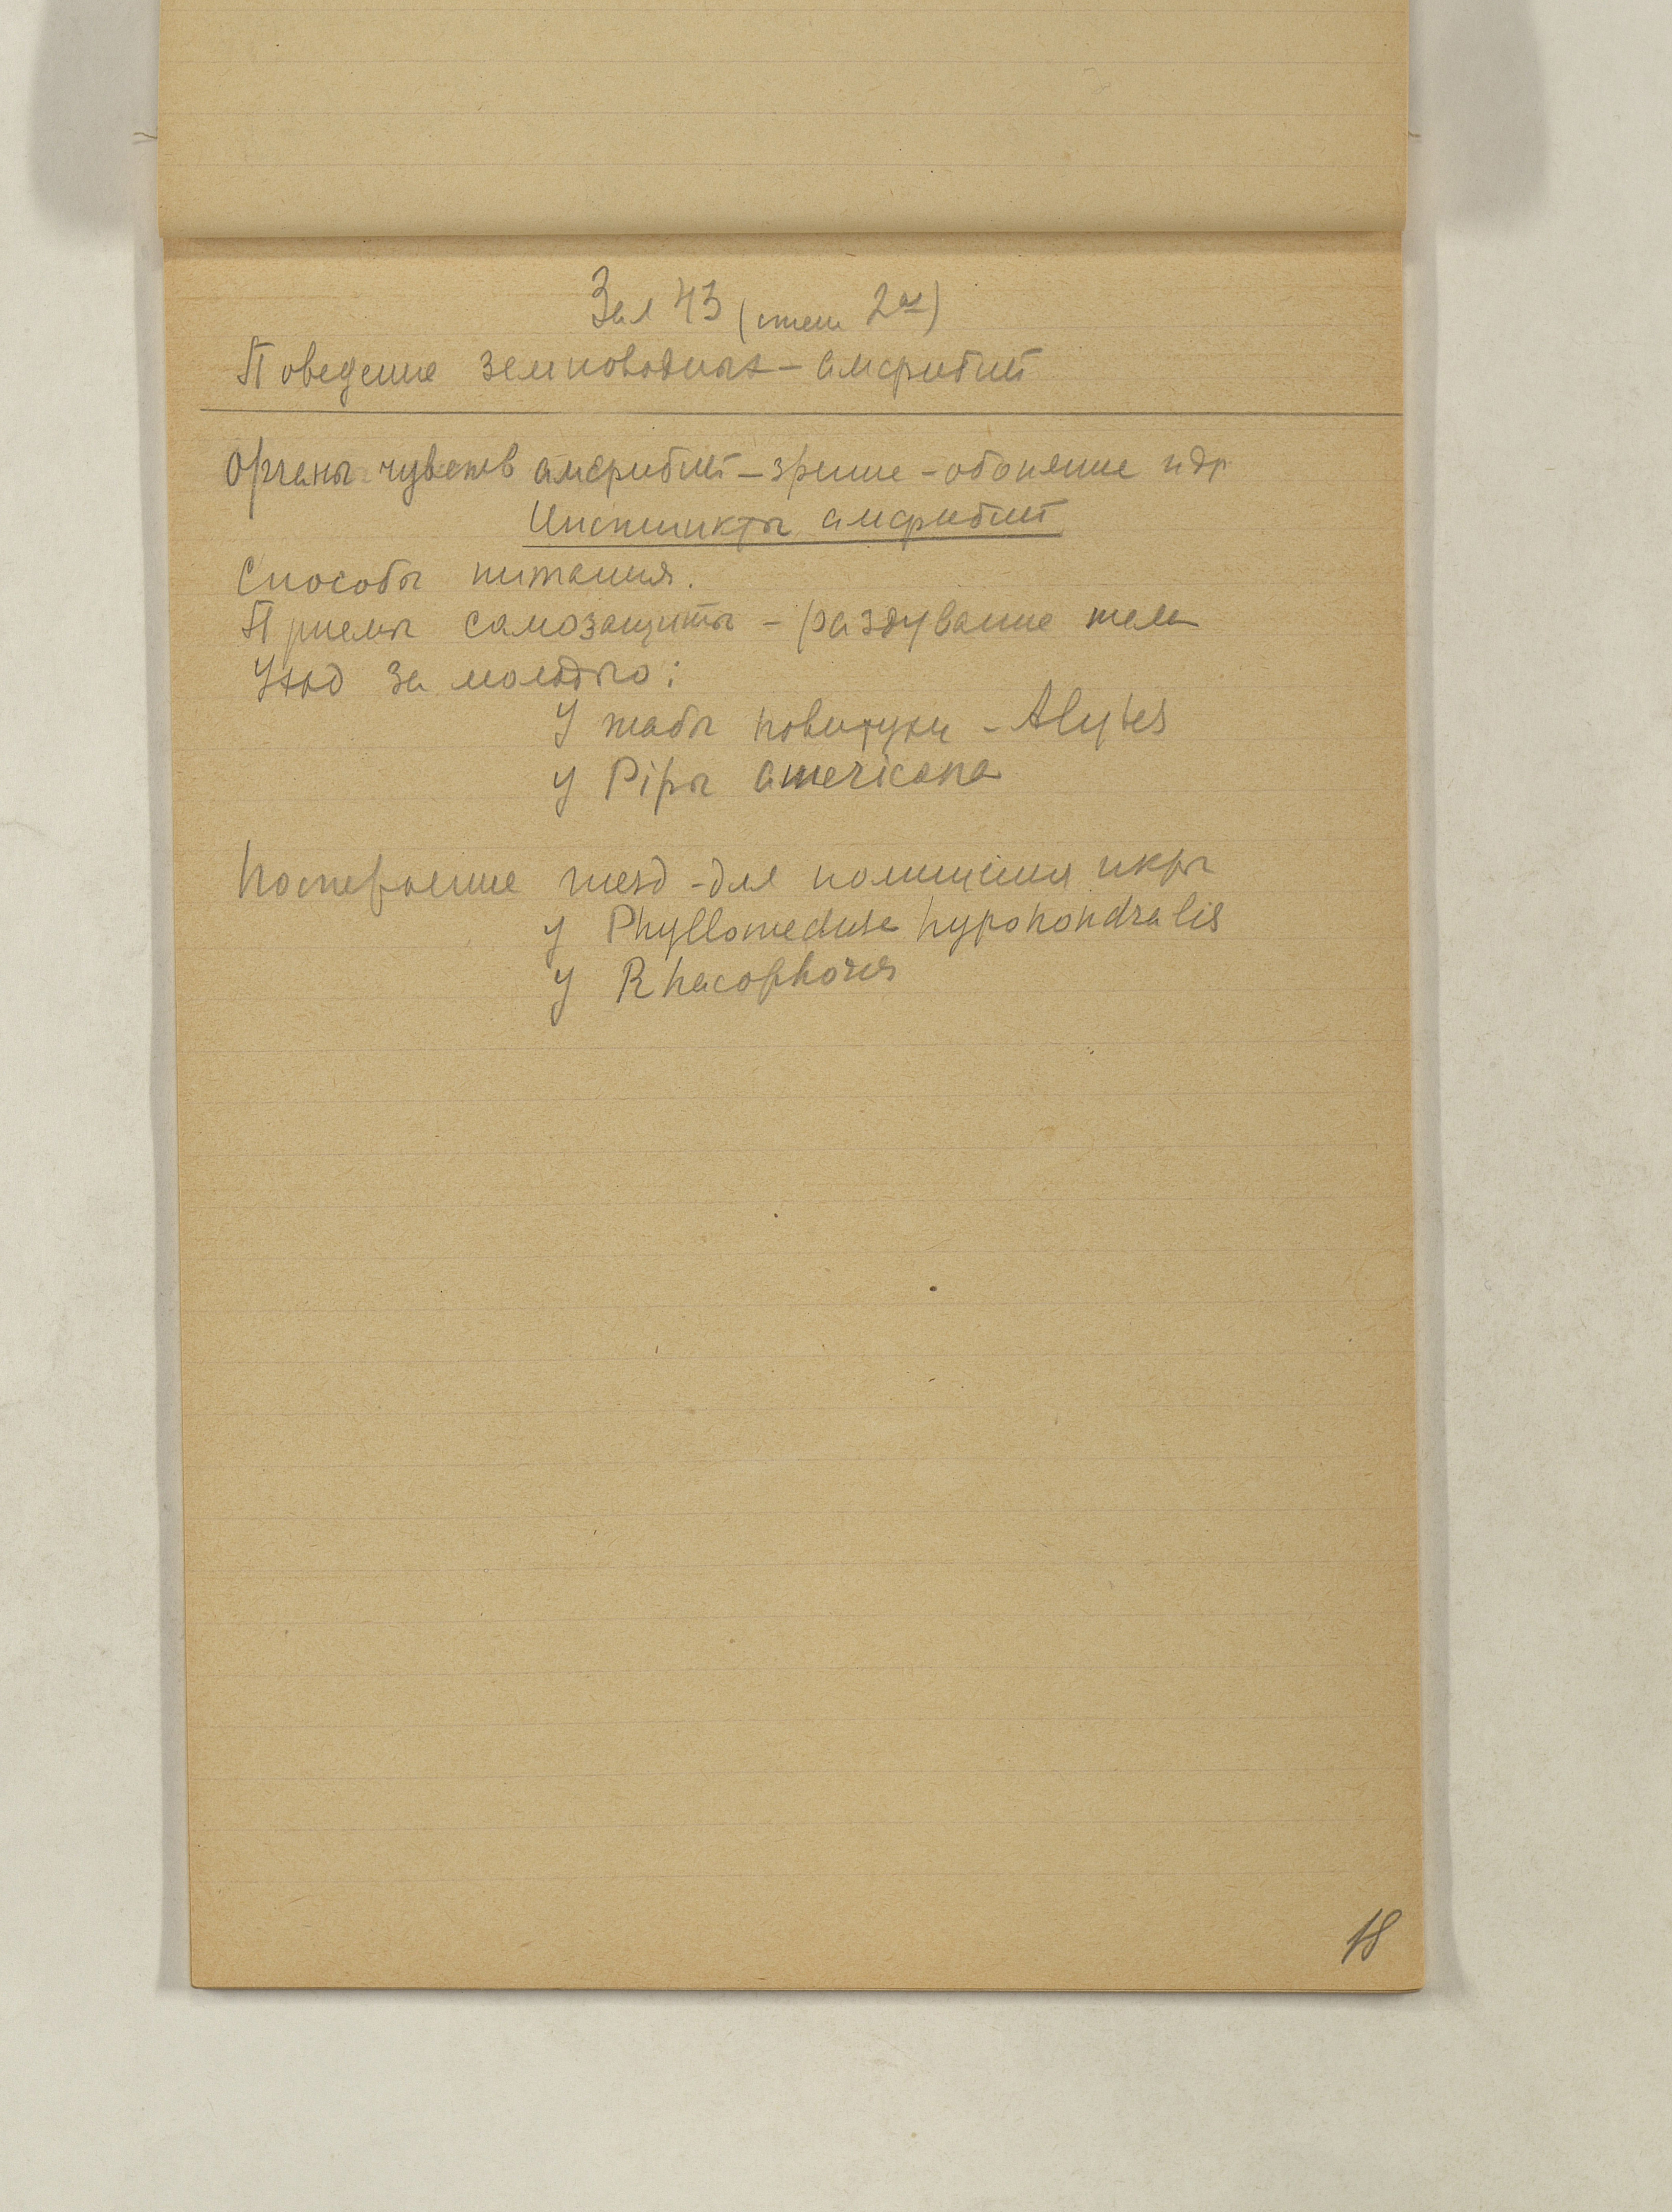 Зал 43 (стена 2ая)
Поведение земноводных – амфибий
Органы чувств амфибий – зрение – обоняние и др
Инстинкты амфибий
Способы питания.
Приемы самозащиты – раздувание тела
Уход за молодью:
У жабы повитухи – Alytes
у Pipы americana
Построение гнезд – для помещения икры
у Phyllomedusa hypohondralis
у Rhacophorus
18